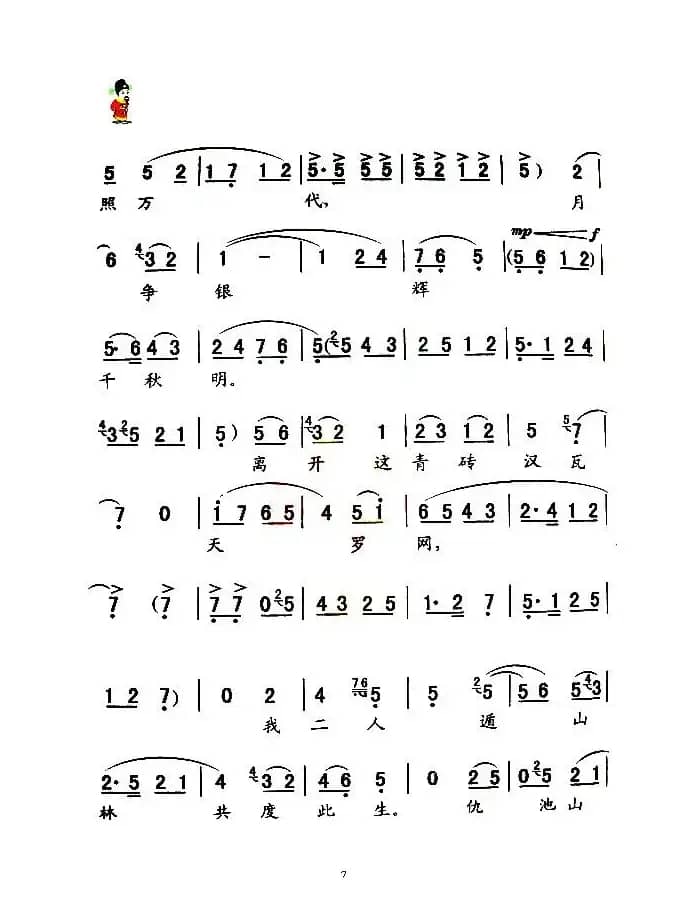 5 5 2 | 1 7 1 2 | 5· 5 5 5 | 5 2 1 2 | 5 ) 2 |
照 万 代, 月
mp f
6 4 3 2 | 1 － | 1 2 4 | 7 6 5 | (5 6 1 2) |
争 银 辉
5· 6 4 3 | 2 4 7 6 | 5 (2 5 4 3 | 2 5 1 2 | 5· 1 2 4 |
千 秋 明。
4 3 2 5 2 1 | 5 ) 5 6 | 4 3 2 1 | 2 3 1 2 | 5 5 7 |
离 开 这 青 砖 汉 瓦
7 0 | i 7 6 5 | 4 5 i | 6 5 4 3 | 2· 4 1 2 |
天 罗 网,
7 (7 | 7 7 0 2 5 | 4 3 2 5 | 1· 2 7 | 5· 1 2 5 |
1 2 7 ) | 0 2 | 4 76 5 | 5 2 5 | 5 6 5 4 3 |
我 二 人 遁 山
2· 5 2 1 | 4 4 3 2 | 4 6 5 | 0 2 5 | 0 2 5 2 1 |
林 共 度 此 生。 仇 池 山
7